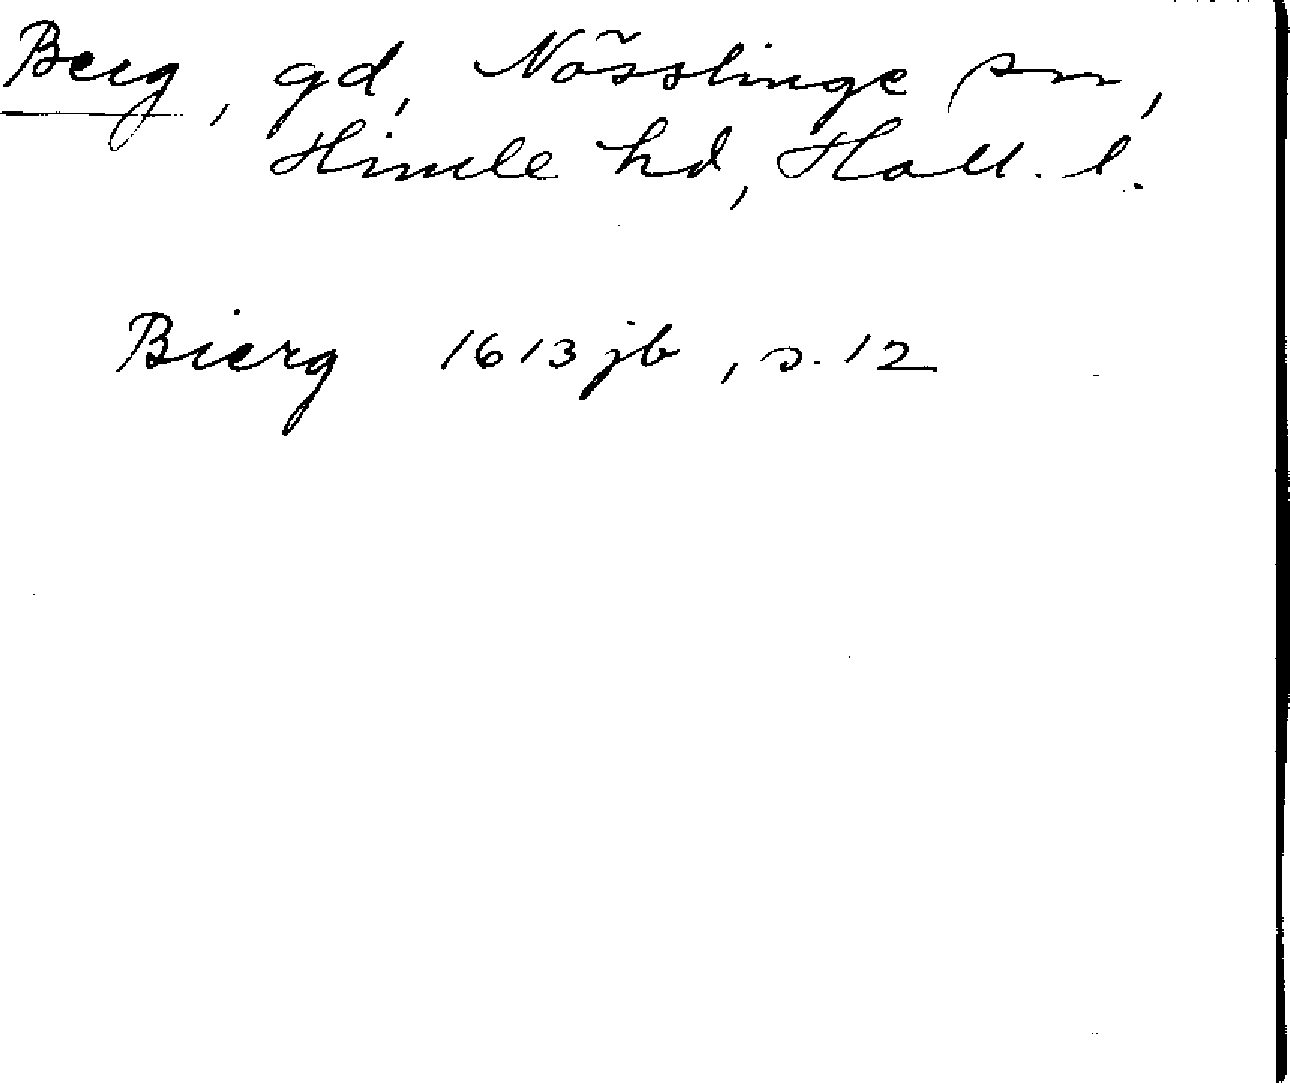 Berg, gd, Nösslinge sn,
Himle hd, Hall. l.
Bierg 1613 jb, s. 12